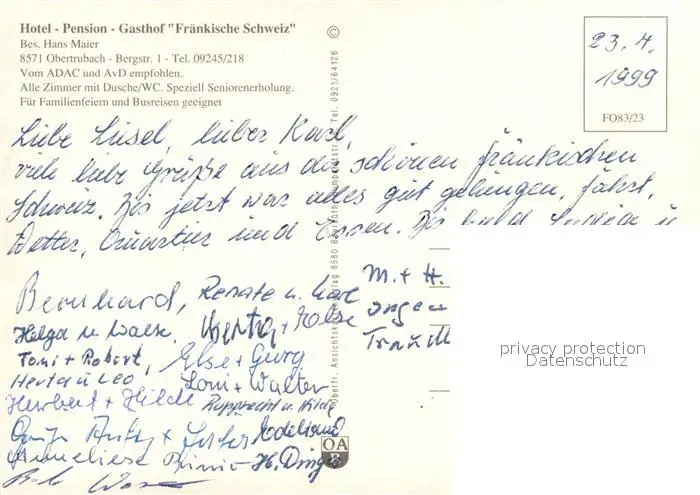 Hotel - Pension - Gasthof "Fränkische Schweiz"
Bes. Hans Maier
8571 Obertrubach - Bergstr. 1 - Tel. 09245/218
Vom ADAC und AvD empfohlen.
Alle Zimmer mit Dusche/WC. Speziell Seniorenerholung.
Für Familienfeiern und Busreisen geeignet
©
23. 4.
1999
FO83/23
Liebe Liesel, lieber Karl,
viele liebe Grüße aus der schönen fränkischen
Schweiz. Bis jetzt war alles gut gelungen, Fahrt,
Wetter, Quartier und Essen. Bis bald
Bernhard, Renate u. Karl
M. + H.
Helga u. Hertha +
Traudl
Toni + Robert, Else + Georg
Herta u Leo Loni + Walter
Herbert + Hilde Rupprecht u. Hilde
Edeltraud
Anneliese H. Dinges
Oberfr. Ansichtskartenverlag 8580 Bayreuth Tel. 0921/64126
OA
B
privacy protection
Datenschutz